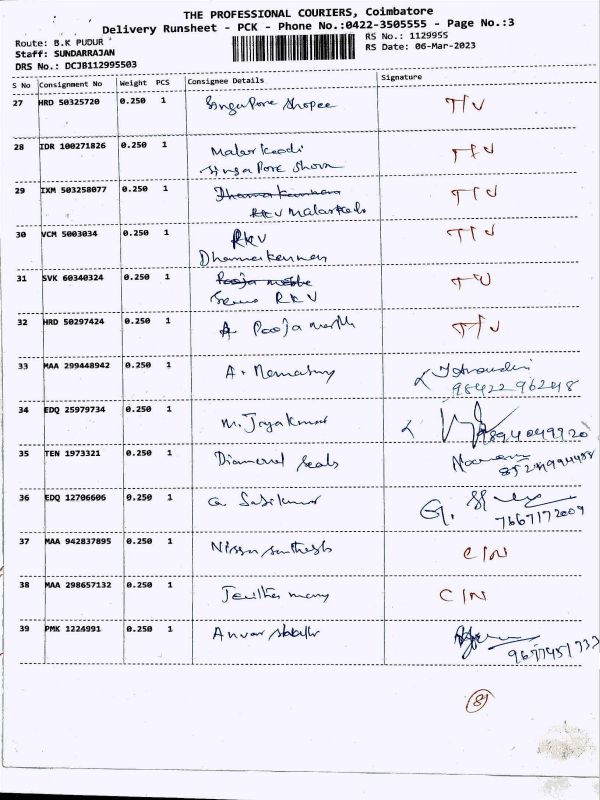 THE PROFESSIONAL COURIERS, Coimbatore
Delivery Runsheet - PCK - Phone No.:0422-3505555 - Page No.:3
Route: B.K PUDUR
RS No.: 1129955
Staff: SUNDARRAJAN
RS Date: 06-Mar-2023
DRS No.: DCJB112995503
S No Consignment No Weight PCS Consignee Details Signature
27 HRD 50325720 0.250 1 Singapore shopee T/V
28 IDR 100271826 0.250 1 Malarkodi T/V
singapore
29 IXM 503258077 0.250 1 T/V
RKV Malarkodi
30 VCM 5003034 0.250 1 RKV T/V
31 SVK 60340324 0.250 1 Pooja T/V
RKV
32 HRD 50297424 0.250 1 Pooja T/V
33 MAA 299448942 0.250 1 A.
98422 96248
34 EDQ 25979734 0.250 1 M. Jayakumar
9894049920
35 TEN 1973321 0.250 1 Diamond seals
36 EDQ 12706606 0.250 1 G Sasikumar G.
7667172009
37 MAA 942837895 0.250 1 C/N
38 MAA 298657132 0.250 1 Jenitha mary C/N
39 PMK 1224991 0.250 1 Anvar
9677451733